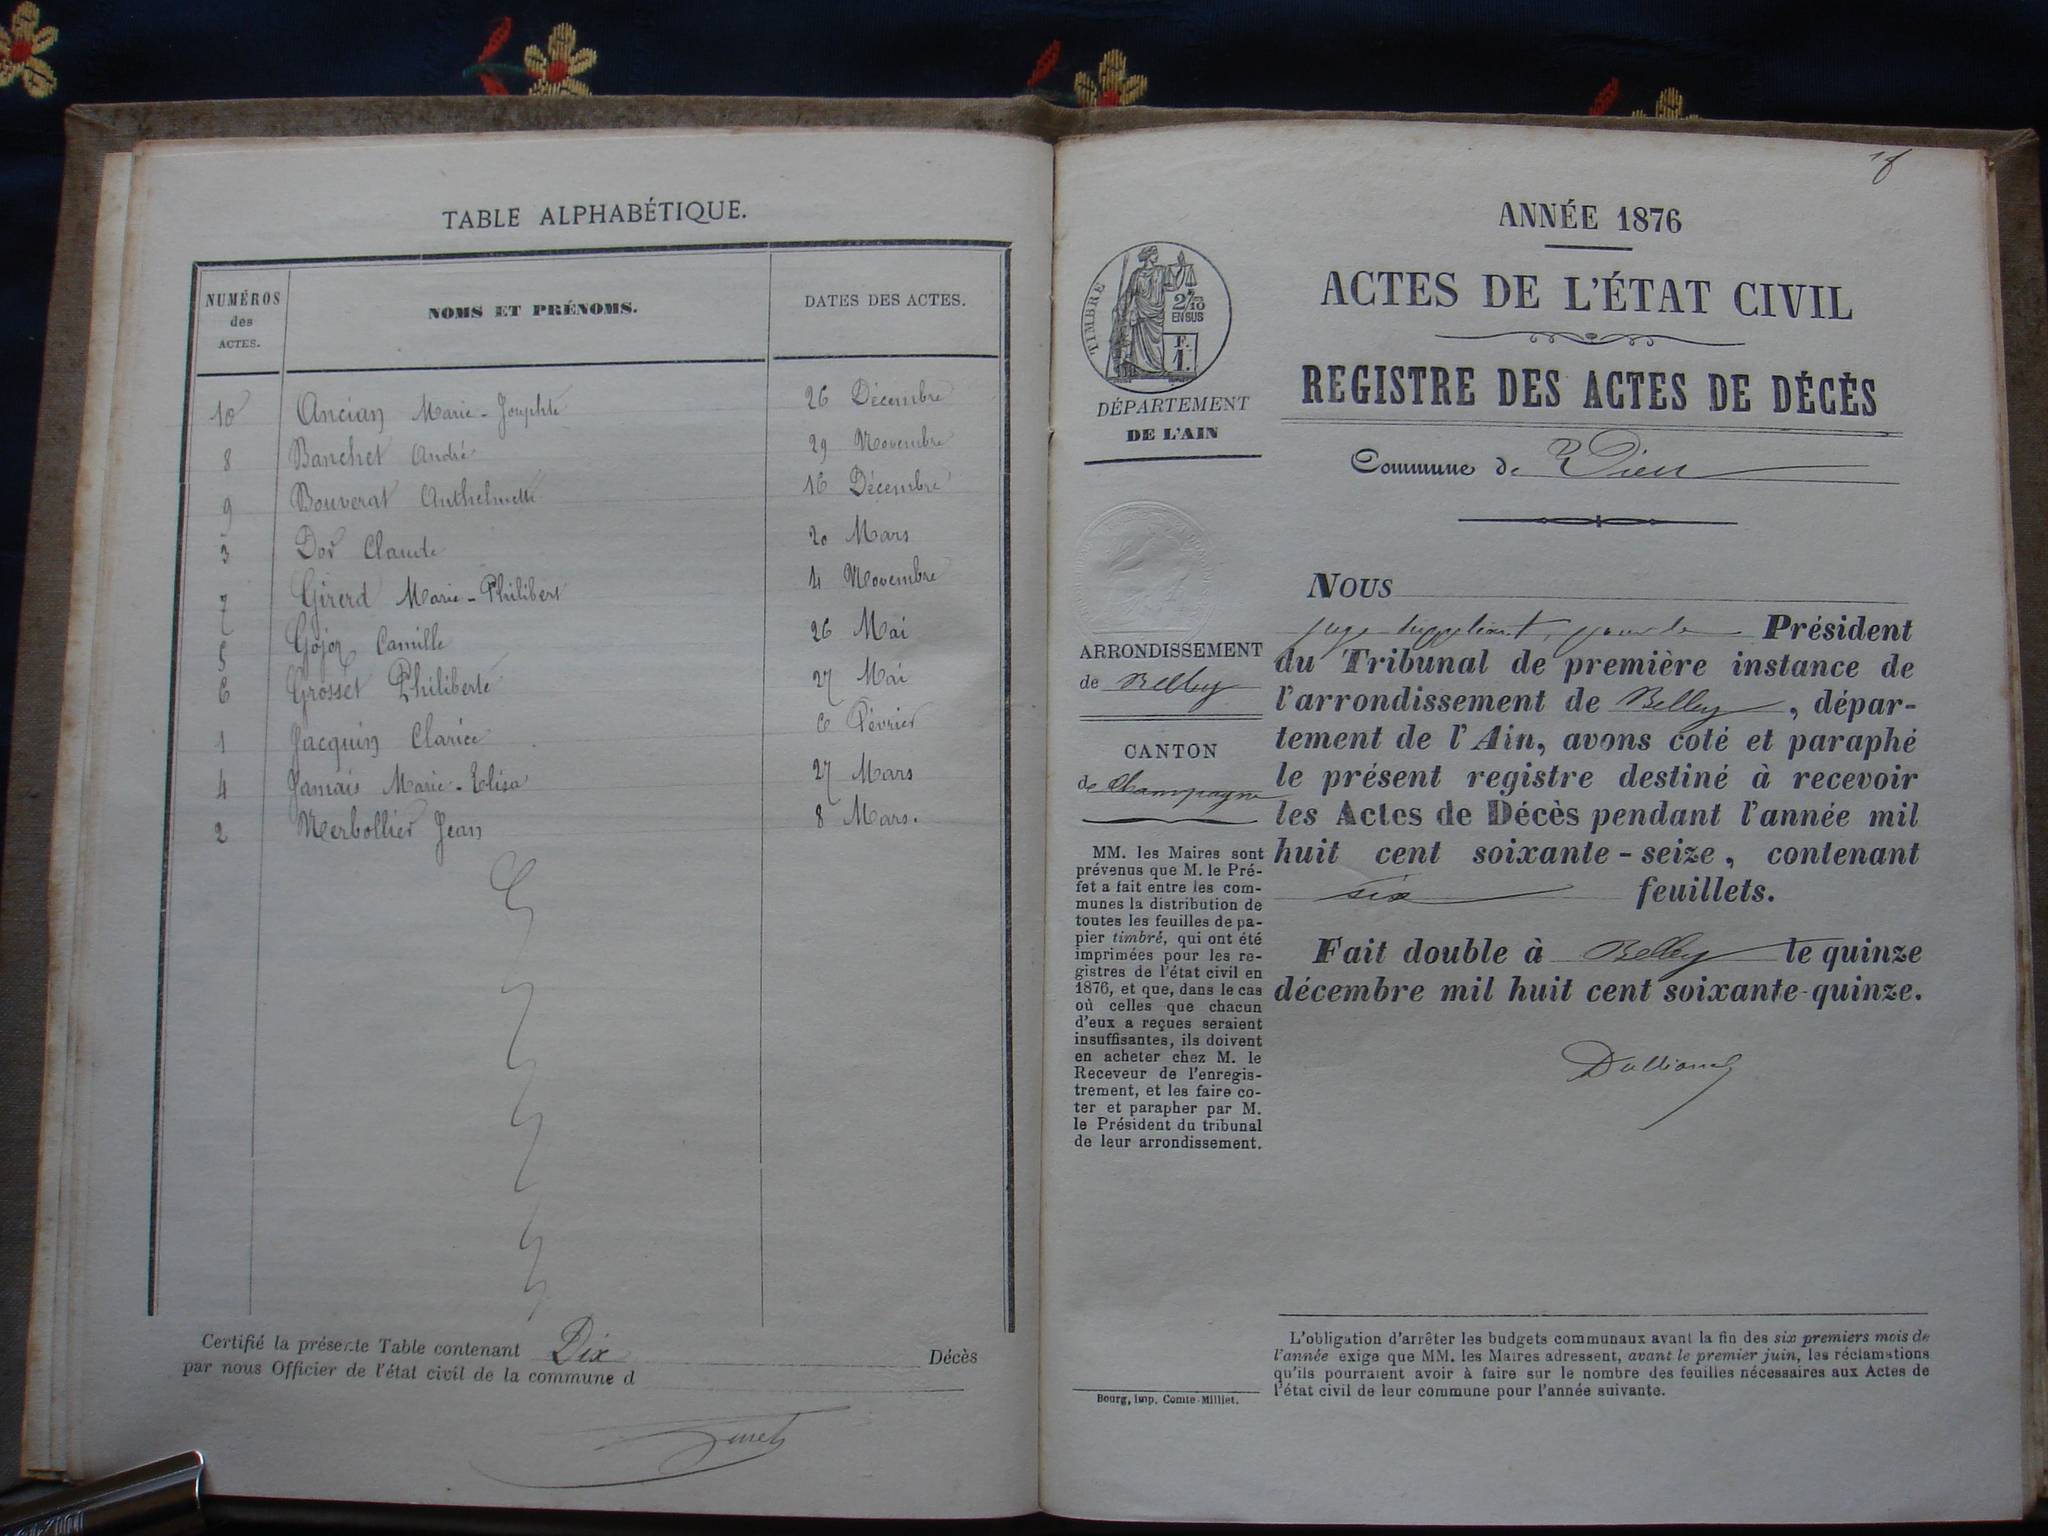 TABLE ALPHABÉTIQUE.
NUMÉROS
des
ACTES.
NOMS ET PRÉNOMS.
DATES DES ACTES.
10 Ancian Marie-Josephte 26 Décembre
8 Banchet André 29 Novembre
9 Bouverat Anthelmette 16 Décembre
3 Dor Claude 20 Mars
7 Girerd Marie-Philibert 4 Novembre
5 Gojoz Camille 26 Mai
6 Grosset Philiberte 27 Mai
1 Jacquin Clarice 6 Février
4 Jamais Marie-Elisa 27 Mars
2 Merbollier Jean 8 Mars.
Certifié la présente Table contenant Dix Décès
par nous Officier de l'état civil de la commune d
1 f
ANNÉE 1876
ACTES DE L'ÉTAT CIVIL
REGISTRE DES ACTES DE DÉCÈS
Commune de Vieu
TIMBRE
2/10
EN SUS
F.
1.
DÉPARTEMENT
DE L'AIN
ARRONDISSEMENT
de Belley
CANTON
de Champagne
MM. les Maires sont
prévenus que M. le Pré-
fet a fait entre les com-
munes la distribution de
toutes les feuilles de pa-
pier timbré, qui ont été
imprimées pour les re-
gistres de l'état civil en
1876, et que, dans le cas
où celles que chacun
d'eux a reçues seraient
insuffisantes, ils doivent
en acheter chez M. le
Receveur de l'enregis-
trement, et les faire co-
ter et parapher par M.
le Président du tribunal
de leur arrondissement.
Bourg, imp. Comte-Milliet.
NOUS
juge suppléant, pour le Président
du Tribunal de première instance de
l'arrondissement de Belley, dépar-
tement de l'Ain, avons coté et paraphé
le présent registre destiné à recevoir
les Actes de Décès pendant l'année mil
huit cent soixante-seize, contenant
six feuillets.
Fait double à Belley le quinze
décembre mil huit cent soixante-quinze.
L'obligation d'arrêter les budgets communaux avant la fin des six premiers mois de
l'année exige que MM. les Maires adressent, avant le premier juin, les réclamations
qu'ils pourraient avoir à faire sur le nombre des feuilles nécessaires aux Actes de
l'état civil de leur commune pour l'année suivante.